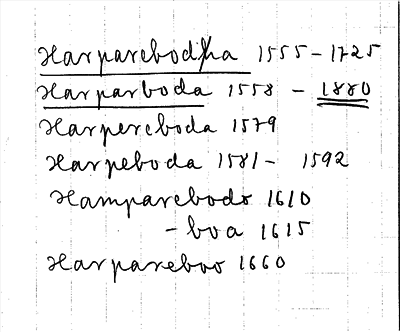 Harparebodha 1555-1725
Harparboda 1558 - 1880
Harpereboda 1579
Harpeboda 1581- 1592
Hamparebodo 1610
- boa 1615
Harpareboo 1660